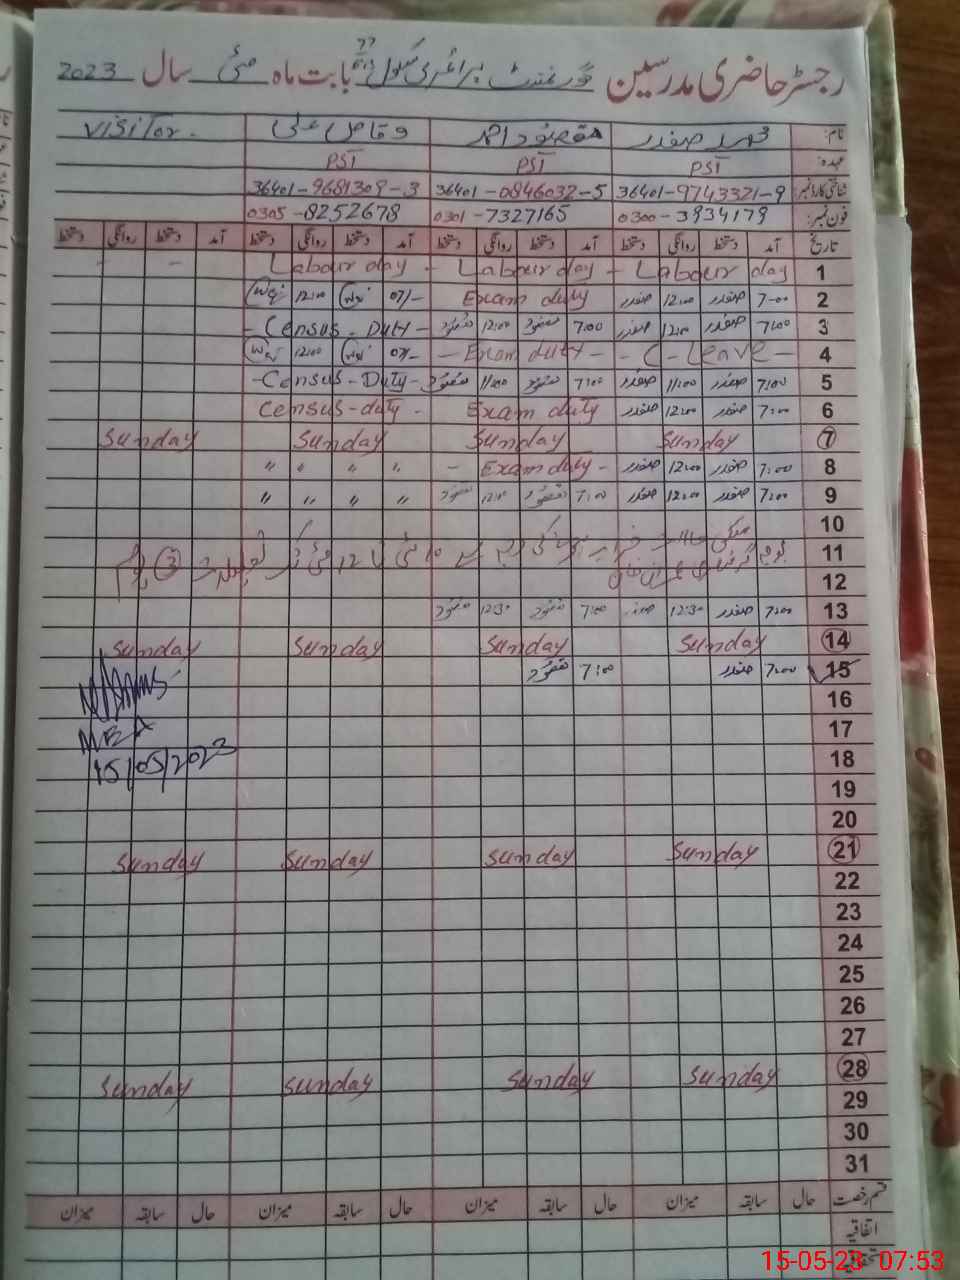 رجسٹر حاضری مدرسین گورنمنٹ پرائمری سکول 77 بابت ماہ مئی سال 2023
نام: محمد صفدر مقصود احمد وقاص علی Visitor.
عہدہ: PST PST PST
شناختی کارڈ نمبر: 36401-9743321-9 36401-0846032-5 36401-9681309-3
فون نمبر: 0300-3934179 0301-7327165 0305-8252678
تاریخ آمد دستخط روانگی دستخط آمد دستخط روانگی دستخط آمد دستخط روانگی دستخط آمد دستخط روانگی دستخط
1 Labour day - Labour day - Labour day - -
2 7-00 صفدر 12:00 صفدر Exam duty 07/- 12:00
3 7:00 صفدر 12:00 صفدر 7:00 مقصود 12:00 مقصود - Census - Duty -
4 - C - Leave - - Exam duty - 07/- 12:00
5 7:00 صفدر 11:00 صفدر 7:00 مقصود 11:00 مقصود - Census - Duty -
6 7:00 صفدر 12:00 صفدر Exam duty Census - duty -
7 Sunday Sunday Sunday Sunday
8 7:00 صفدر 12:00 صفدر - Exam duty - " " " "
9 7:00 صفدر 12:00 صفدر 7:00 مقصود 12:00 مقصود " " " "
10
ملکی حالات خراب ہونے کی وجہ سے 10 مئی تا 12 مئی تک تعطیلات
11
بوجہ گرفتاری عمران خان
12
13 7:00 صفدر 12:30 صفدر 7:00 مقصود 12:30 مقصود
14 Sunday Sunday Sunday Sunday
15 7:00 صفدر 7:00 مقصود
16
17
MEA
18
15/05/2023
19
20
21 Sunday Sunday Sunday Sunday
22
23
24
25
26
27
28 Sunday Sunday Sunday Sunday
29
30
31
قسم رخصت حال سابقہ میزان حال سابقہ میزان حال سابقہ میزان حال سابقہ میزان
اتفاقیہ
15-05-23 07:53